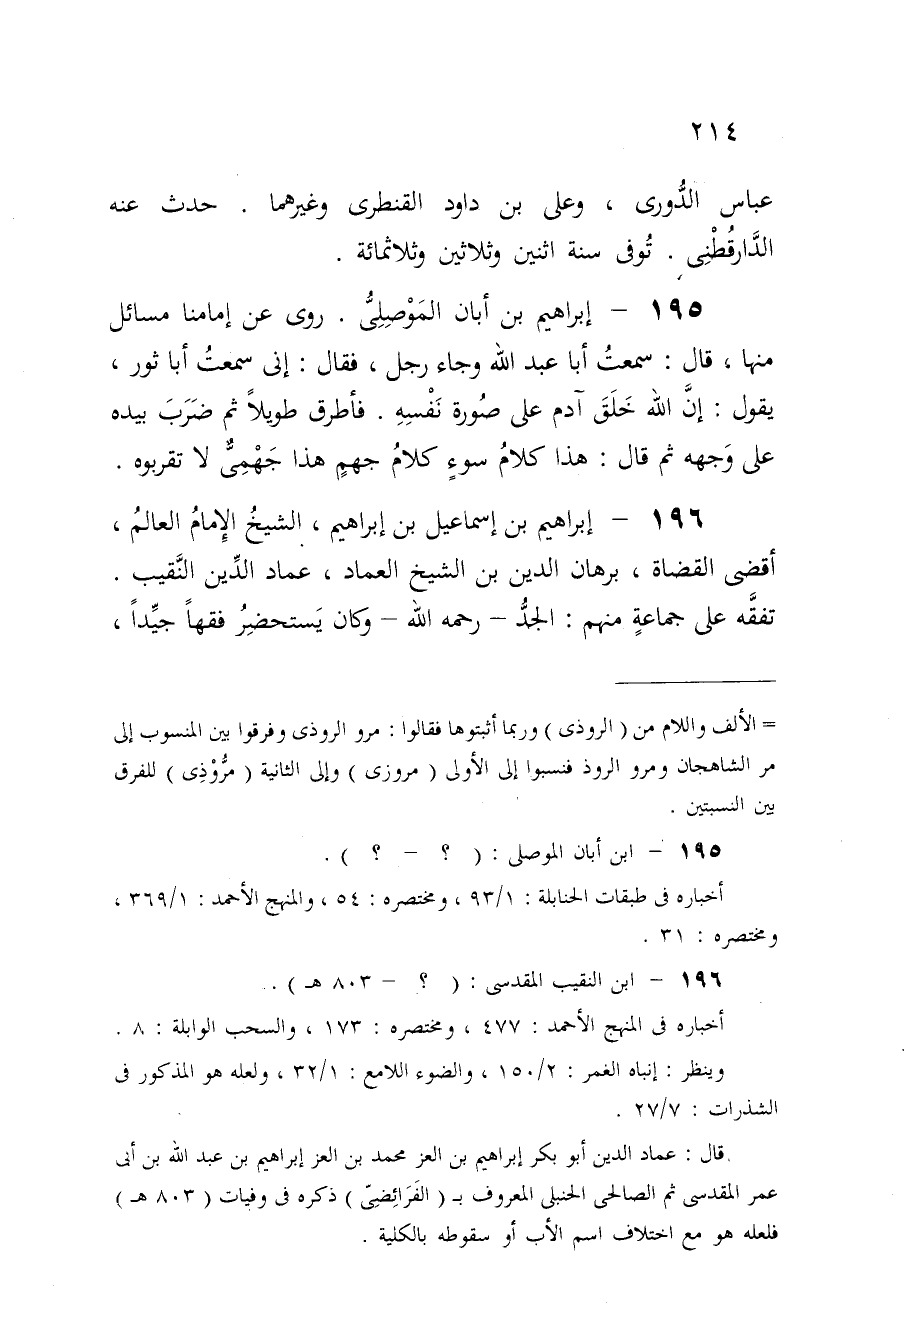 ٢١٤
عباس الدُّورى ، وعلى بن داود القنطرى وغيرهما . حدث عنه
الدَّارقُطْنِى . تُوفى سنة اثنين وثلاثين وثلاثمائة .
١٩٥ – إبراهيم بن أبان المَوْصِلِىُّ . روى عن إمامنا مسائل
منها ، قال : سمعتُ أبا عبد الله وجاء رجل ، فقال : إنى سمعتُ أبا ثور ،
يقول : إنَّ الله خَلَقَ آدم على صُورة نَفْسِهِ . فأطرق طويلاً ثم ضَرَبَ بيده
على وَجهه ثم قال : هذا كلامُ سوءٍ كلامُ جهمٍ هذا جَهْمِىٌّ لا تقربوه .
١٩٦ – إبراهيم بن إسماعيل بن إبراهيم ، الشيخُ الإِمامُ العالمُ ،
أقضى القضاة ، برهان الدين بن الشيخ العماد ، عماد الدِّين النَّقيب .
تفقَّه على جماعةٍ منهم : الجدُّ – رحمه الله – وكان يَستحضِرُ فقهاً جيِّداً ،
= الألف واللام من ( الروذى ) وربما أثبتوها فقالوا : مرو الروذى وفرقوا بين المنسوب إلى
مر الشاهجان ومرو الروذ فنسبوا إلى الأولى ( مروزى ) وإلى الثانية ( مرُّوْذِى ) للفرق
بين النسبتين .
١٩٥ – ابن أبان الموصلى : ( ؟ – ؟ ) .
أخباره فى طبقات الحنابلة : ٩٣/١ ، ومختصره : ٥٤ ، والمنهج الأحمد : ٣٦٩/١ ،
ومختصره : ٣١ .
١٩٦ – ابن النقيب المقدسى : ( ؟ – ٨٠٣ هـ ) .
أخباره فى المنهج الأحمد : ٤٧٧ ، ومختصره : ١٧٣ ، والسحب الوابلة : ٨ .
وينظر : إنباه الغمر : ١٥٠/٢ ، والضوء اللامع : ٣٢/١ ، ولعله هو المذكور فى
الشذرات : ٢٧/٧ .
قال : عماد الدين أبو بكر إبراهيم بن العز محمد بن العز إبراهيم بن عبد الله بن أبى
عمر المقدسى ثم الصالحى الحنبلى المعروف بـ ( الفَرَائِضِىّ ) ذكره فى وفيات ( ٨٠٣ هـ )
فلعله هو مع اختلاف اسم الأب أو سقوطه بالكلية .